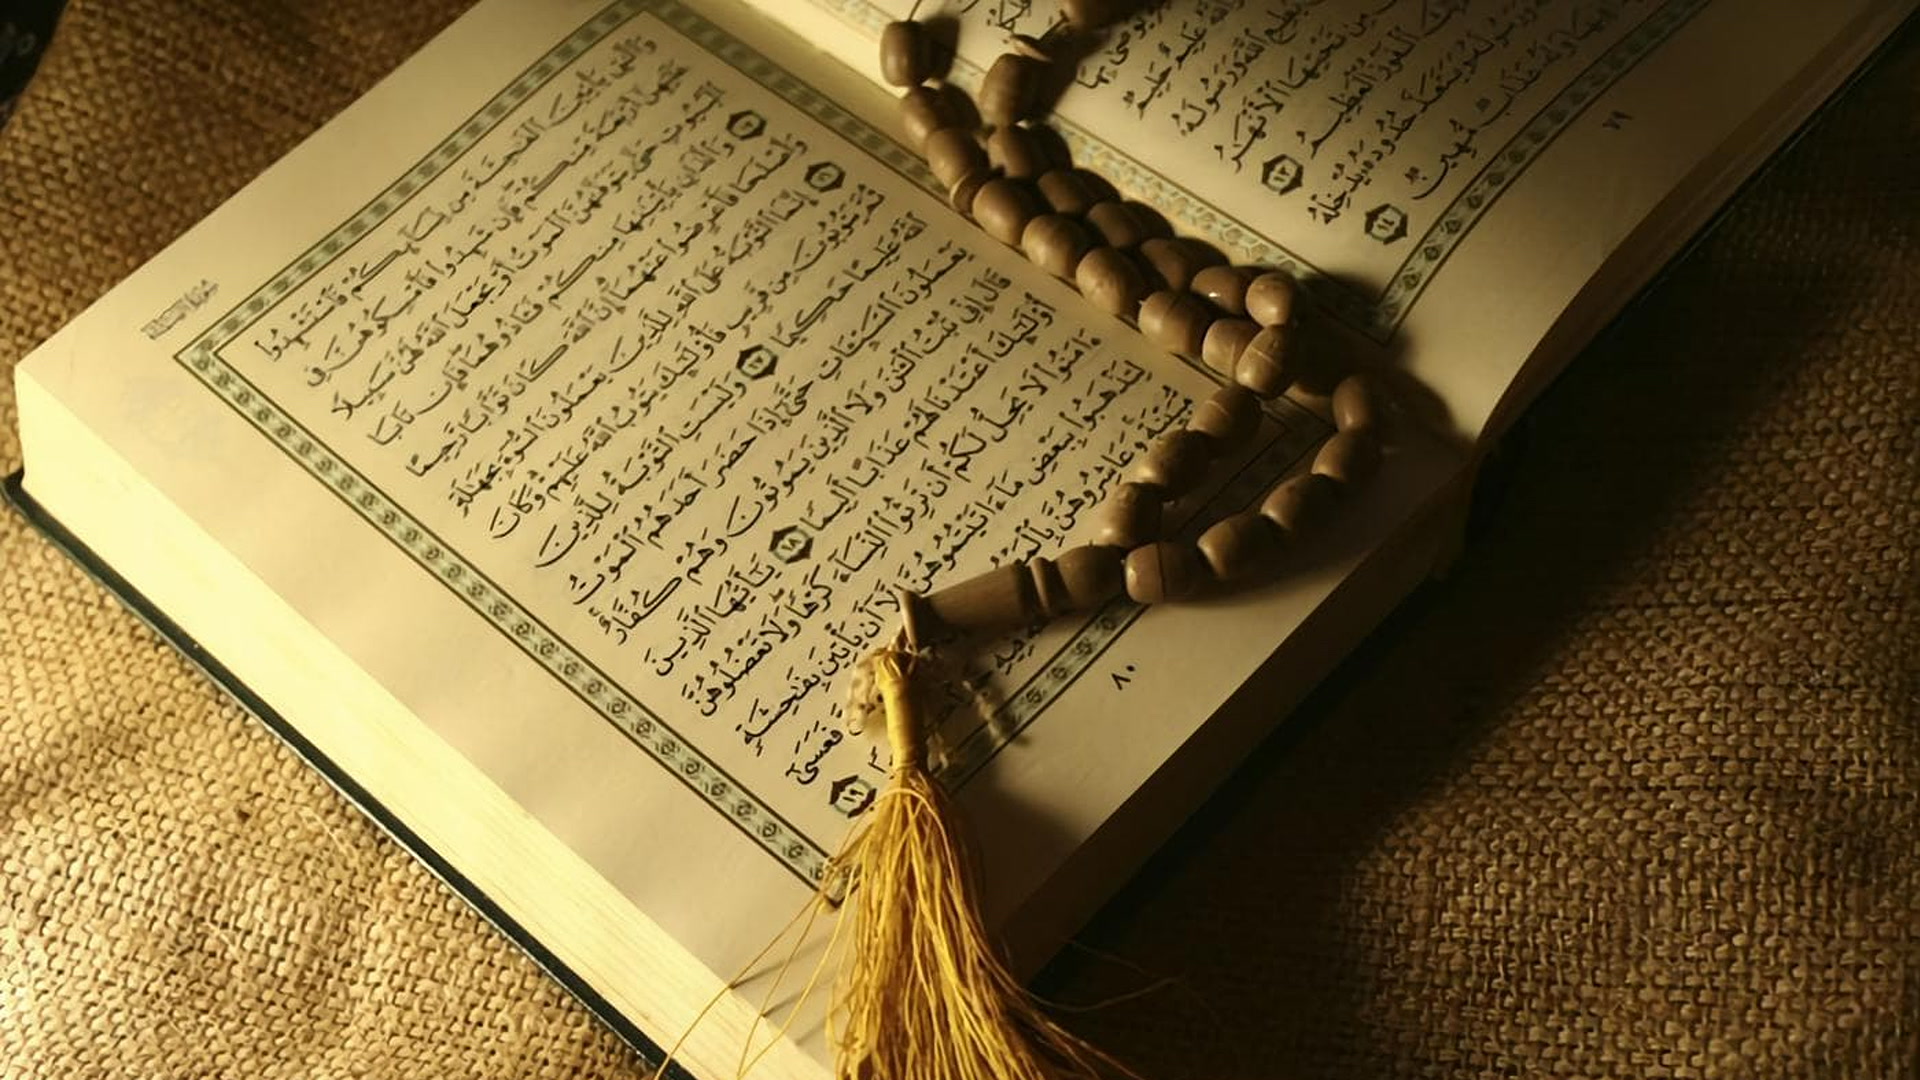 يُوصَىٰ بِهَآ
عَلِيمٌ حَلِيمٌ
يُطِعِ ٱللَّهَ وَرَسُولَهُۥ
مِن تَحْتِهَا ٱلْأَنْهَٰرُ
ٱلْفَوْزُ ٱلْعَظِيمُ ١٣
وَرَسُولَهُۥ وَيَتَعَدَّ حُدُودَهُۥ يُدْخِلْهُ
فِيهَا وَلَهُۥ عَذَابٌ مُّهِينٌ ١٤
٧٩
سورة النساء
وَٱلَّٰتِى يَأْتِينَ ٱلْفَٰحِشَةَ مِن نِّسَآئِكُمْ فَٱسْتَشْهِدُوا۟
عَلَيْهِنَّ أَرْبَعَةً مِّنكُمْ فَإِن شَهِدُوا۟ فَأَمْسِكُوهُنَّ فِى
ٱلْبُيُوتِ حَتَّىٰ يَتَوَفَّىٰهُنَّ ٱلْمَوْتُ أَوْ يَجْعَلَ ٱللَّهُ لَهُنَّ سَبِيلًا
١٥ وَٱلَّذَانِ يَأْتِيَٰنِهَا مِنكُمْ فَـَٔاذُوهُمَا فَإِن تَابَا
وَأَصْلَحَا فَأَعْرِضُوا۟ عَنْهُمَآ إِنَّ ٱللَّهَ كَانَ تَوَّابًا رَّحِيمًا
١٦ إِنَّمَا ٱلتَّوْبَةُ عَلَى ٱللَّهِ لِلَّذِينَ يَعْمَلُونَ ٱلسُّوٓءَ بِجَهَٰلَةٍ
ثُمَّ يَتُوبُونَ مِن قَرِيبٍ فَأُو۟لَٰٓئِكَ يَتُوبُ ٱللَّهُ عَلَيْهِمْ وَكَانَ
ٱللَّهُ عَلِيمًا حَكِيمًا ١٧ وَلَيْسَتِ ٱلتَّوْبَةُ لِلَّذِينَ
يَعْمَلُونَ ٱلسَّيِّـَٔاتِ حَتَّىٰٓ إِذَا حَضَرَ أَحَدَهُمُ ٱلْمَوْتُ
قَالَ إِنِّى تُبْتُ ٱلْـَٰٔنَ وَلَا ٱلَّذِينَ يَمُوتُونَ وَهُمْ كُفَّارٌ
أُو۟لَٰٓئِكَ أَعْتَدْنَا لَهُمْ عَذَابًا أَلِيمًا ١٨ يَٰٓأَيُّهَا ٱلَّذِينَ
ءَامَنُوا۟ لَا يَحِلُّ لَكُمْ أَن تَرِثُوا۟ ٱلنِّسَآءَ كَرْهًا وَلَا تَعْضُلُوهُنَّ
لِتَذْهَبُوا۟ بِبَعْضِ مَآ ءَاتَيْتُمُوهُنَّ إِلَّآ أَن يَأْتِينَ بِفَٰحِشَةٍ
مُّبَيِّنَةٍ وَعَاشِرُوهُنَّ فَعَسَىٰٓ
فِيهِ ١٩
٨٠